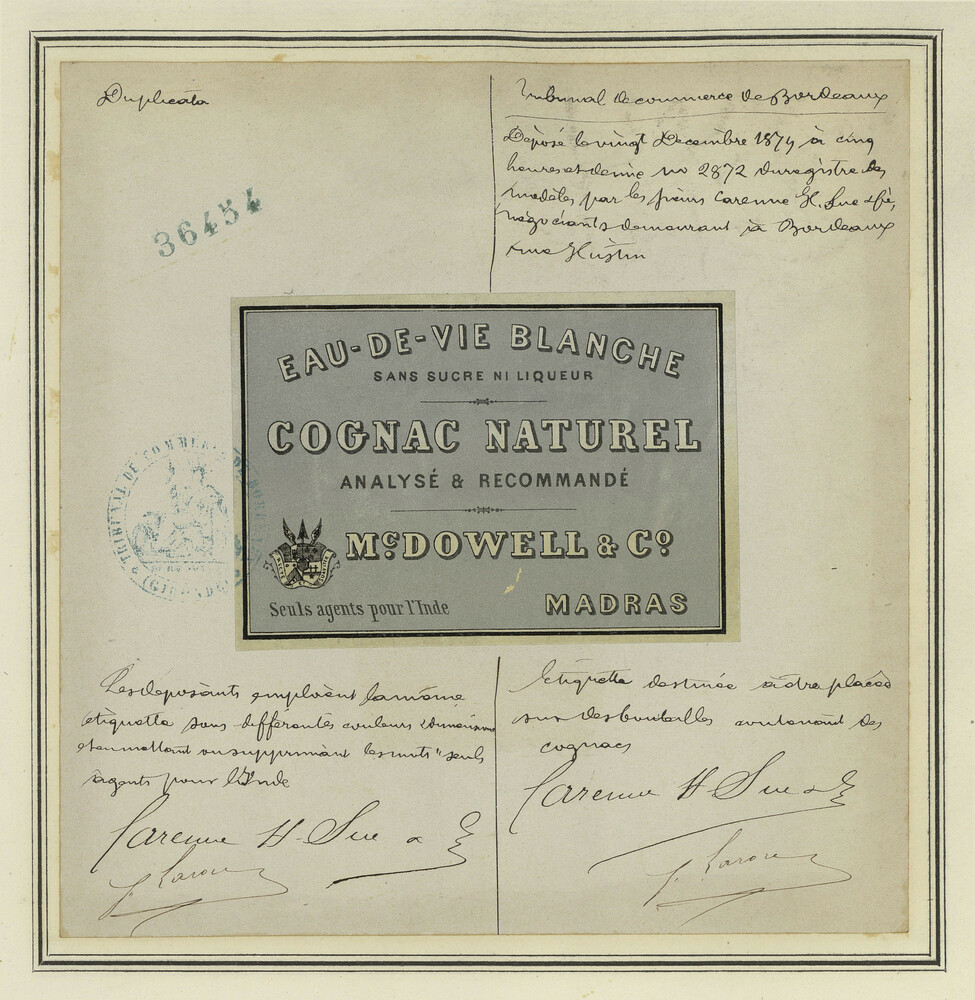 Duplicata
36454
Tribunal de commerce de Bordeaux
Déposé le vingt Décembre 1874 à cinq
heures et demie no 2872 du registre des
modèles par les sieurs Carenne H. Sue & fi,
négociants demeurant à Bordeaux
rue Hustin
EAU-DE-VIE BLANCHE
SANS SUCRE NI LIQUEUR
COGNAC NATUREL
ANALYSÉ & RECOMMANDÉ
McDOWELL & Co
Seuls agents pour l'Inde
MADRAS
TRIBUNAL DE COMMERCE DE BORDEAUX
(GIRONDE)
Les déposants emploient la même
étiquette sous différentes couleurs & dimensions
et en mettant ou supprimant les mots "seuls
agents pour l'Inde
Carenne H. Sue &
Etiquette destinée à être placée
sur des bouteilles contenant des
cognacs
Carenne H Sue &